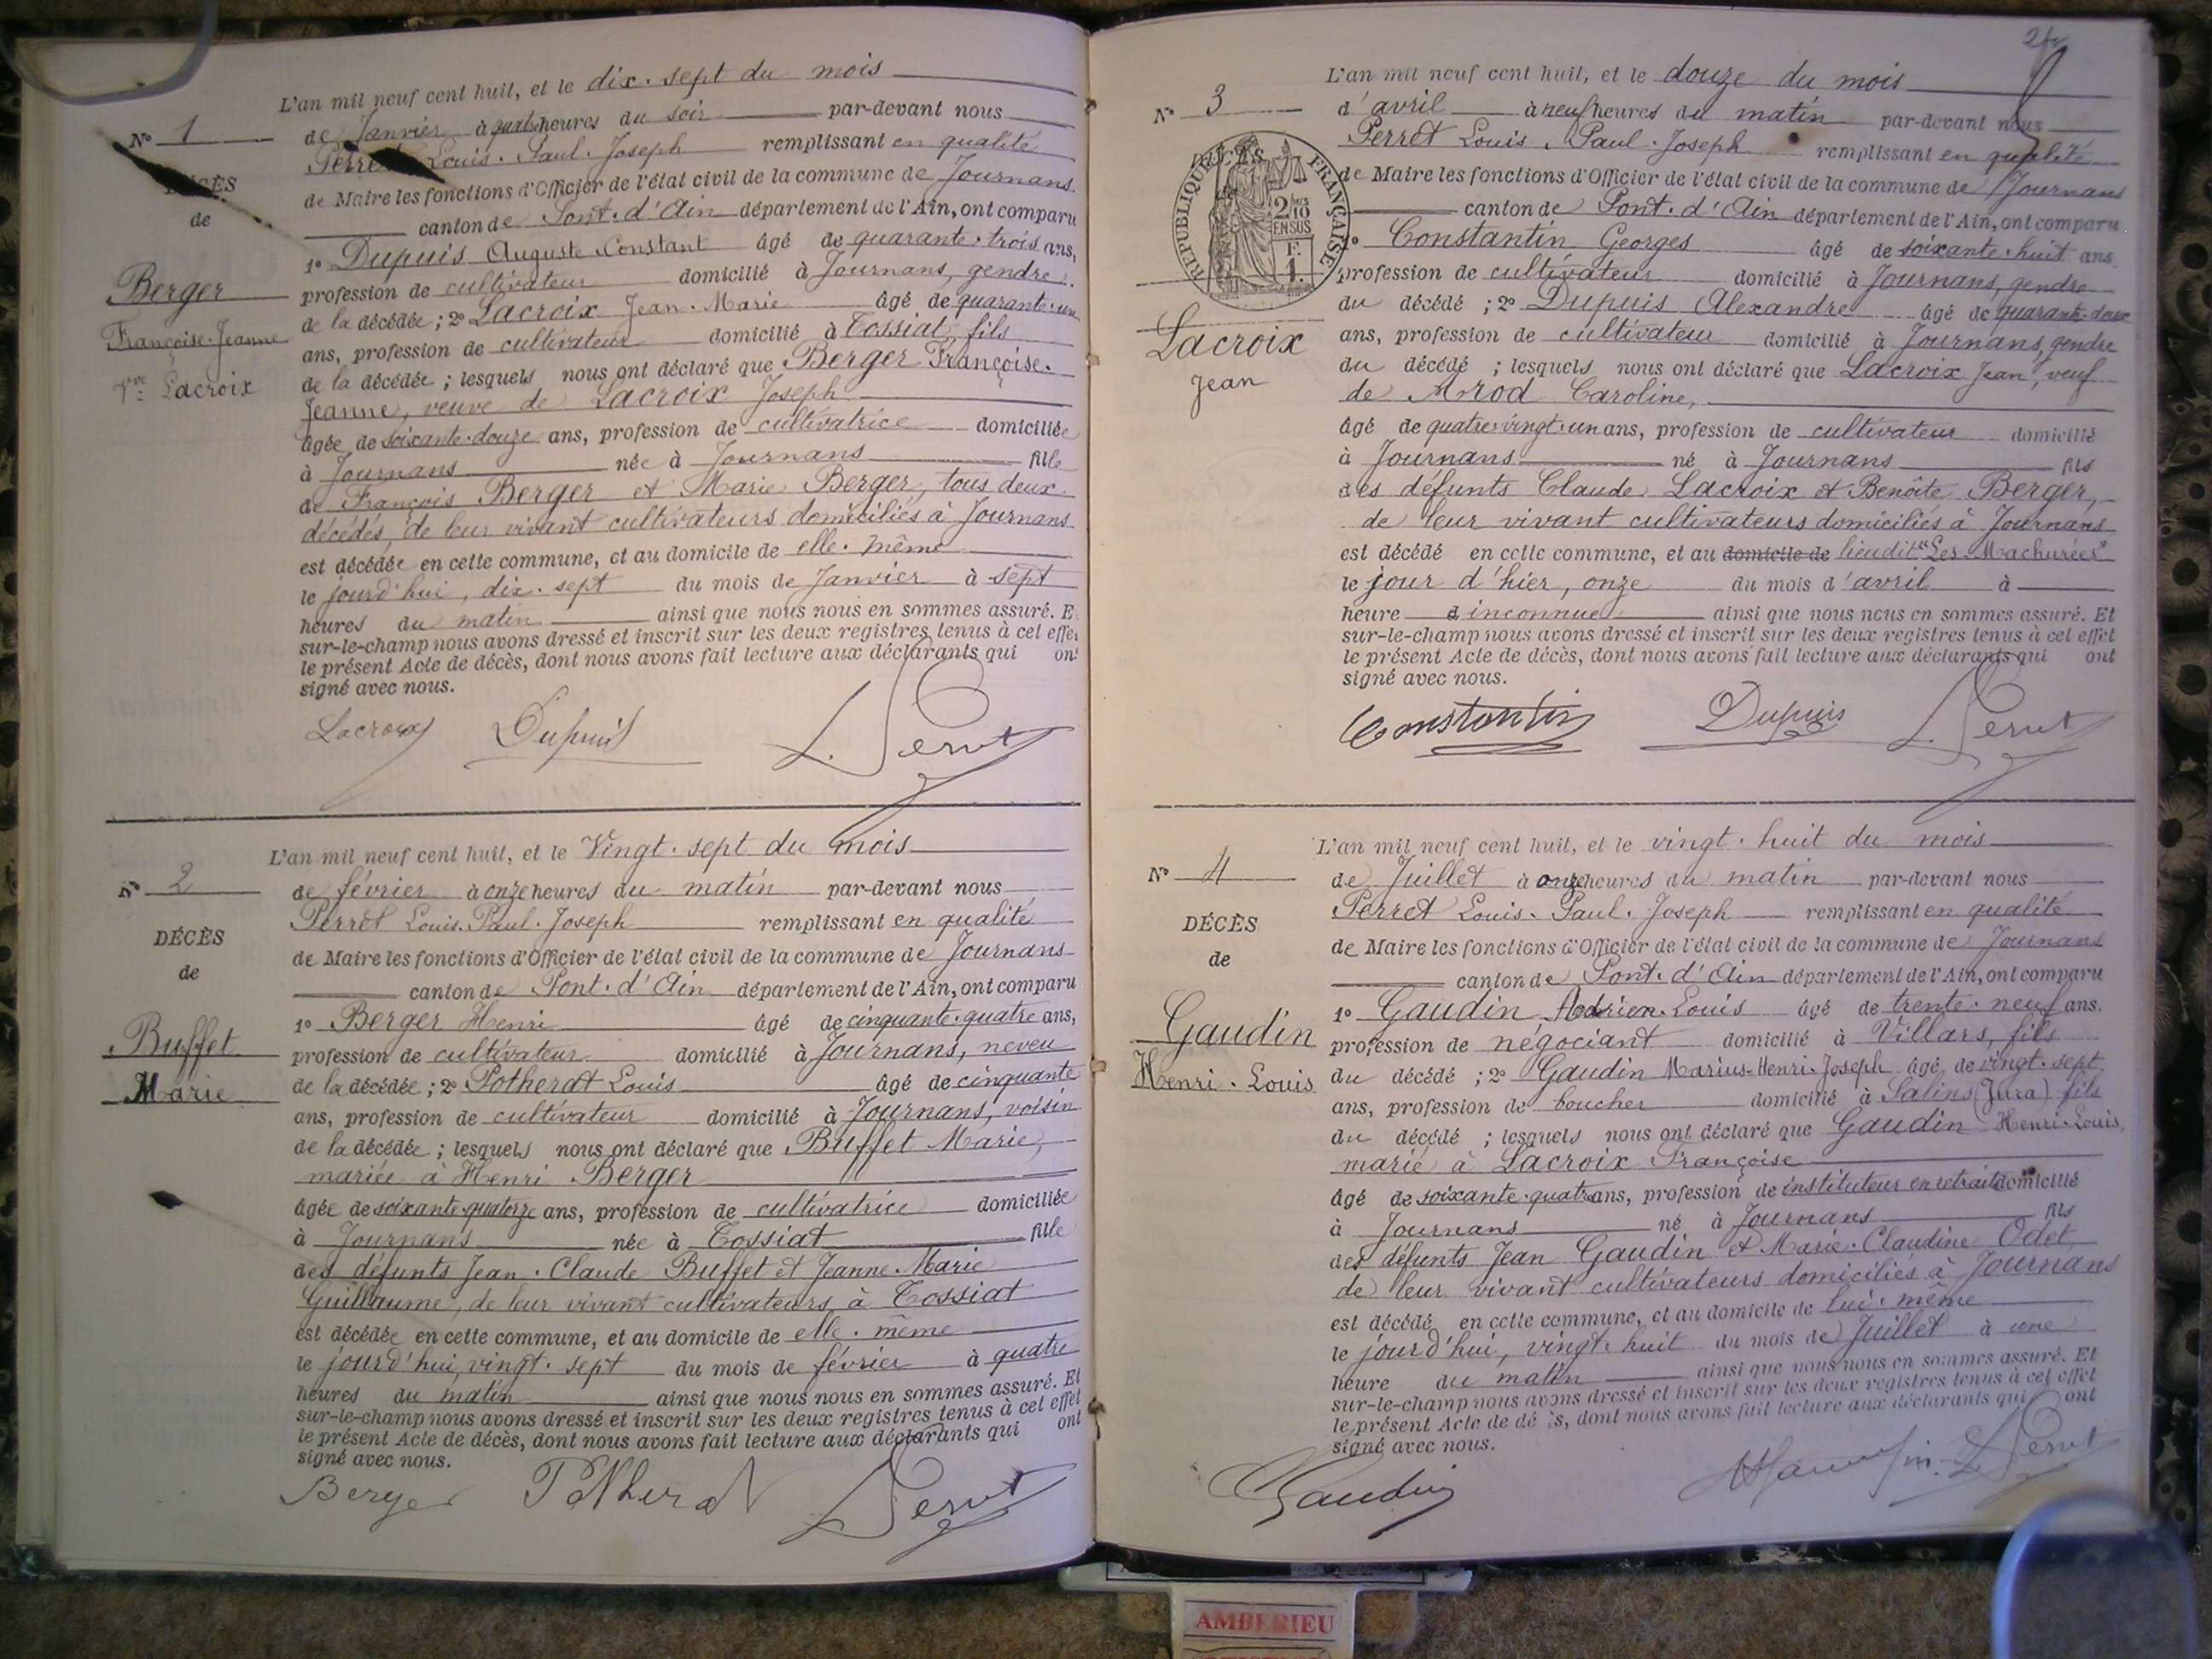 L'an mil neuf cent huit, et le dix-sept du mois
N° 1
de Janvier à quatre heures du soir par-devant nous
Perret Louis-Paul-Joseph remplissant en qualité
DÉCÈS
de Maire les fonctions d'Officier de l'état civil de la commune de Journans
de
canton de Pont-d'Ain département de l'Ain, ont comparu
1° Dupuis Auguste Constant âgé de quarante-trois ans,
profession de cultivateur domicilié à Journans, gendre
Berger
de la décédée ; 2° Lacroix Jean-Marie âgé de quarante-un
Françoise-Jeanne
ans, profession de cultivateur domicilié à Tossiat, fils
Vve Lacroix
de la décédée ; lesquels nous ont déclaré que Berger Françoise-
Jeanne, veuve de Lacroix Joseph
âgée de soixante-douze ans, profession de cultivatrice domiciliée
à Journans née à Journans fille
de François Berger et Marie Berger, tous deux
décédés, de leur vivant cultivateurs domiciliés à Journans
est décédée en cette commune, et au domicile de elle-même
le jourd'hui, dix-sept du mois de Janvier à sept
heures du matin ainsi que nous nous en sommes assuré. E
sur-le-champ nous avons dressé et inscrit sur les deux registres tenus à cet effet
le présent Acte de décès, dont nous avons fait lecture aux déclarants qui ont
signé avec nous.
Lacroix Dupuis L. Perret
L'an mil neuf cent huit, et le Vingt-sept du mois
N° 2
de février à onze heures du matin par-devant nous
Perret Louis-Paul-Joseph remplissant en qualité
DÉCÈS
de Maire les fonctions d'Officier de l'état civil de la commune de Journans
de
canton de Pont-d'Ain département de l'Ain, ont comparu
1° Berger Henri âgé de cinquante-quatre ans,
Buffet
profession de cultivateur domicilié à Journans, neveu
Marie
de la décédée ; 2° Potherat Louis âgé de cinquante
ans, profession de cultivateur domicilié à Journans, voisin
de la décédée ; lesquels nous ont déclaré que Buffet Marie,
mariée à Henri Berger
âgée de soixante-quatorze ans, profession de cultivatrice domiciliée
à Journans née à Tossiat fille
des défunts Jean-Claude Buffet et Jeanne-Marie
Guillaume, de leur vivant cultivateurs à Tossiat
est décédée en cette commune, et au domicile de elle-même
le jourd'hui, vingt-sept du mois de février à quatre
heures du matin ainsi que nous nous en sommes assuré. Et
sur-le-champ nous avons dressé et inscrit sur les deux registres tenus à cet effet
le présent Acte de décès, dont nous avons fait lecture aux déclarants qui ont
signé avec nous.
Berger Potherat L. Perret
L'an mil neuf cent huit, et le douze du mois
N° 3
d'avril à neuf heures du matin par-devant nous
Perret Louis-Paul-Joseph remplissant en qualité
RÉPUBLIQUE FRANÇAISE
2/10 EN SUS
F. 1.
de Maire les fonctions d'Officier de l'état civil de la commune de Journans
canton de Pont-d'Ain département de l'Ain, ont comparu
1° Constantin Georges âgé de soixante-huit ans
profession de cultivateur domicilié à Journans, gendre
du décédé ; 2° Dupuis Alexandre âgé de quarante-deux
Lacroix
ans, profession de cultivateur domicilié à Journans, gendre
Jean
du décédé ; lesquels nous ont déclaré que Lacroix Jean, veuf
de Morod Caroline,
âgé de quatre-vingt-un ans, profession de cultivateur domicilié
à Journans né à Journans fils
des défunts Claude Lacroix et Benoîte Berger,
de leur vivant cultivateurs domiciliés à Journans
est décédé en cette commune, et au domicile de lieudit "Les Machurées"
le jour d'hier, onze du mois d'avril à
heure inconnue ainsi que nous nous en sommes assuré. Et
sur-le-champ nous avons dressé et inscrit sur les deux registres tenus à cet effet
le présent Acte de décès, dont nous avons fait lecture aux déclarants qui ont
signé avec nous.
Constantin Dupuis L. Perret
L'an mil neuf cent huit, et le vingt-huit du mois
N° 4
de Juillet à onze heures du matin par-devant nous
Perret Louis-Paul-Joseph remplissant en qualité
DÉCÈS
de Maire les fonctions d'Officier de l'état civil de la commune de Journans
de
canton de Pont-d'Ain département de l'Ain, ont comparu
1° Gaudin Adrien-Louis âgé de trente-neuf ans.
Gaudin
profession de négociant domicilié à Villars, fils
Henri-Louis
du décédé ; 2° Gaudin Marius-Henri-Joseph âgé de vingt-sept
ans, profession de boucher domicilié à Salins (Jura) fils
du décédé ; lesquels nous ont déclaré que Gaudin Henri-Louis,
marié à Lacroix Françoise
âgé de soixante-quatre ans, profession de instituteur en retraite domicilié
à Journans né à Journans fils
des défunts Jean Gaudin et Marie-Claudine Odet
de leur vivant cultivateurs domiciliés à Journans
est décédé en cette commune, et au domicile de lui-même
le jourd'hui, vingt-huit du mois de Juillet à une
heure du matin ainsi que nous nous en sommes assuré. Et
sur-le-champ nous avons dressé et inscrit sur les deux registres tenus à cet effet
le présent Acte de décès, dont nous avons fait lecture aux déclarants qui ont
signé avec nous.
Gaudin L. Perret
AMBERIEU